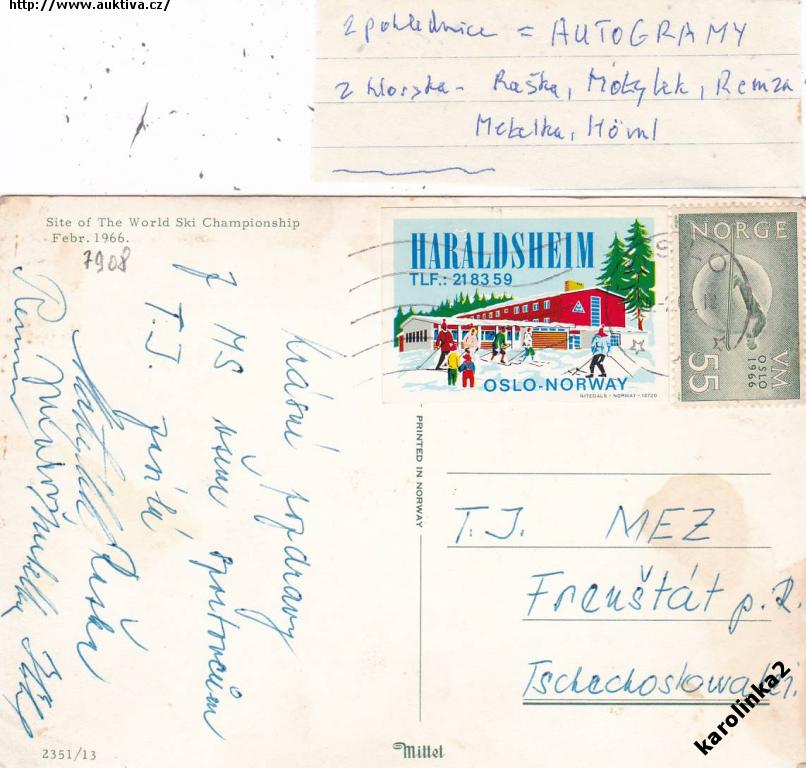 http://www.auktiva.cz/
2 pohlednice = AUTOGRAMY
z Norska - Raška, Motylek, Remza
Metelka, Höml
Site of The World Ski Championship
Febr. 1966.
7908
Krásné pozdravy
z MS všem sportovcům
T.J. zasílá
Raška
HARALDSHEIM
TLF.: 218359
OSLO-NORWAY
NITEDALS - NORWAY - 12720
NORGE
VM
OSLO
1966
55
OSLO
PRINTED IN NORWAY
T.J. MEZ
Frenštát p. R.
Tschechoslowakei.
2351/13
Mittet
karolinka2